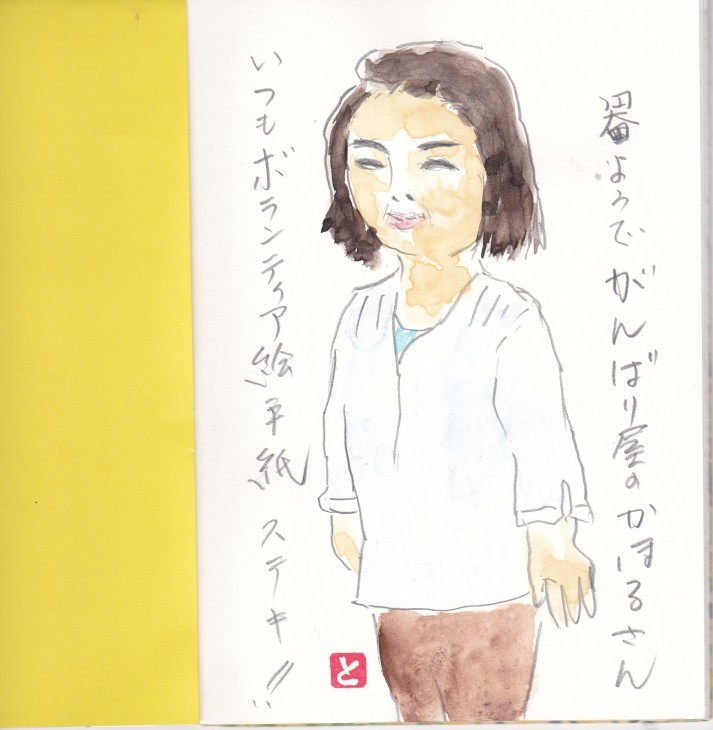 器ようで がんばり屋の かほるさん
いつもボランティア絵手紙 ステキ!!
と